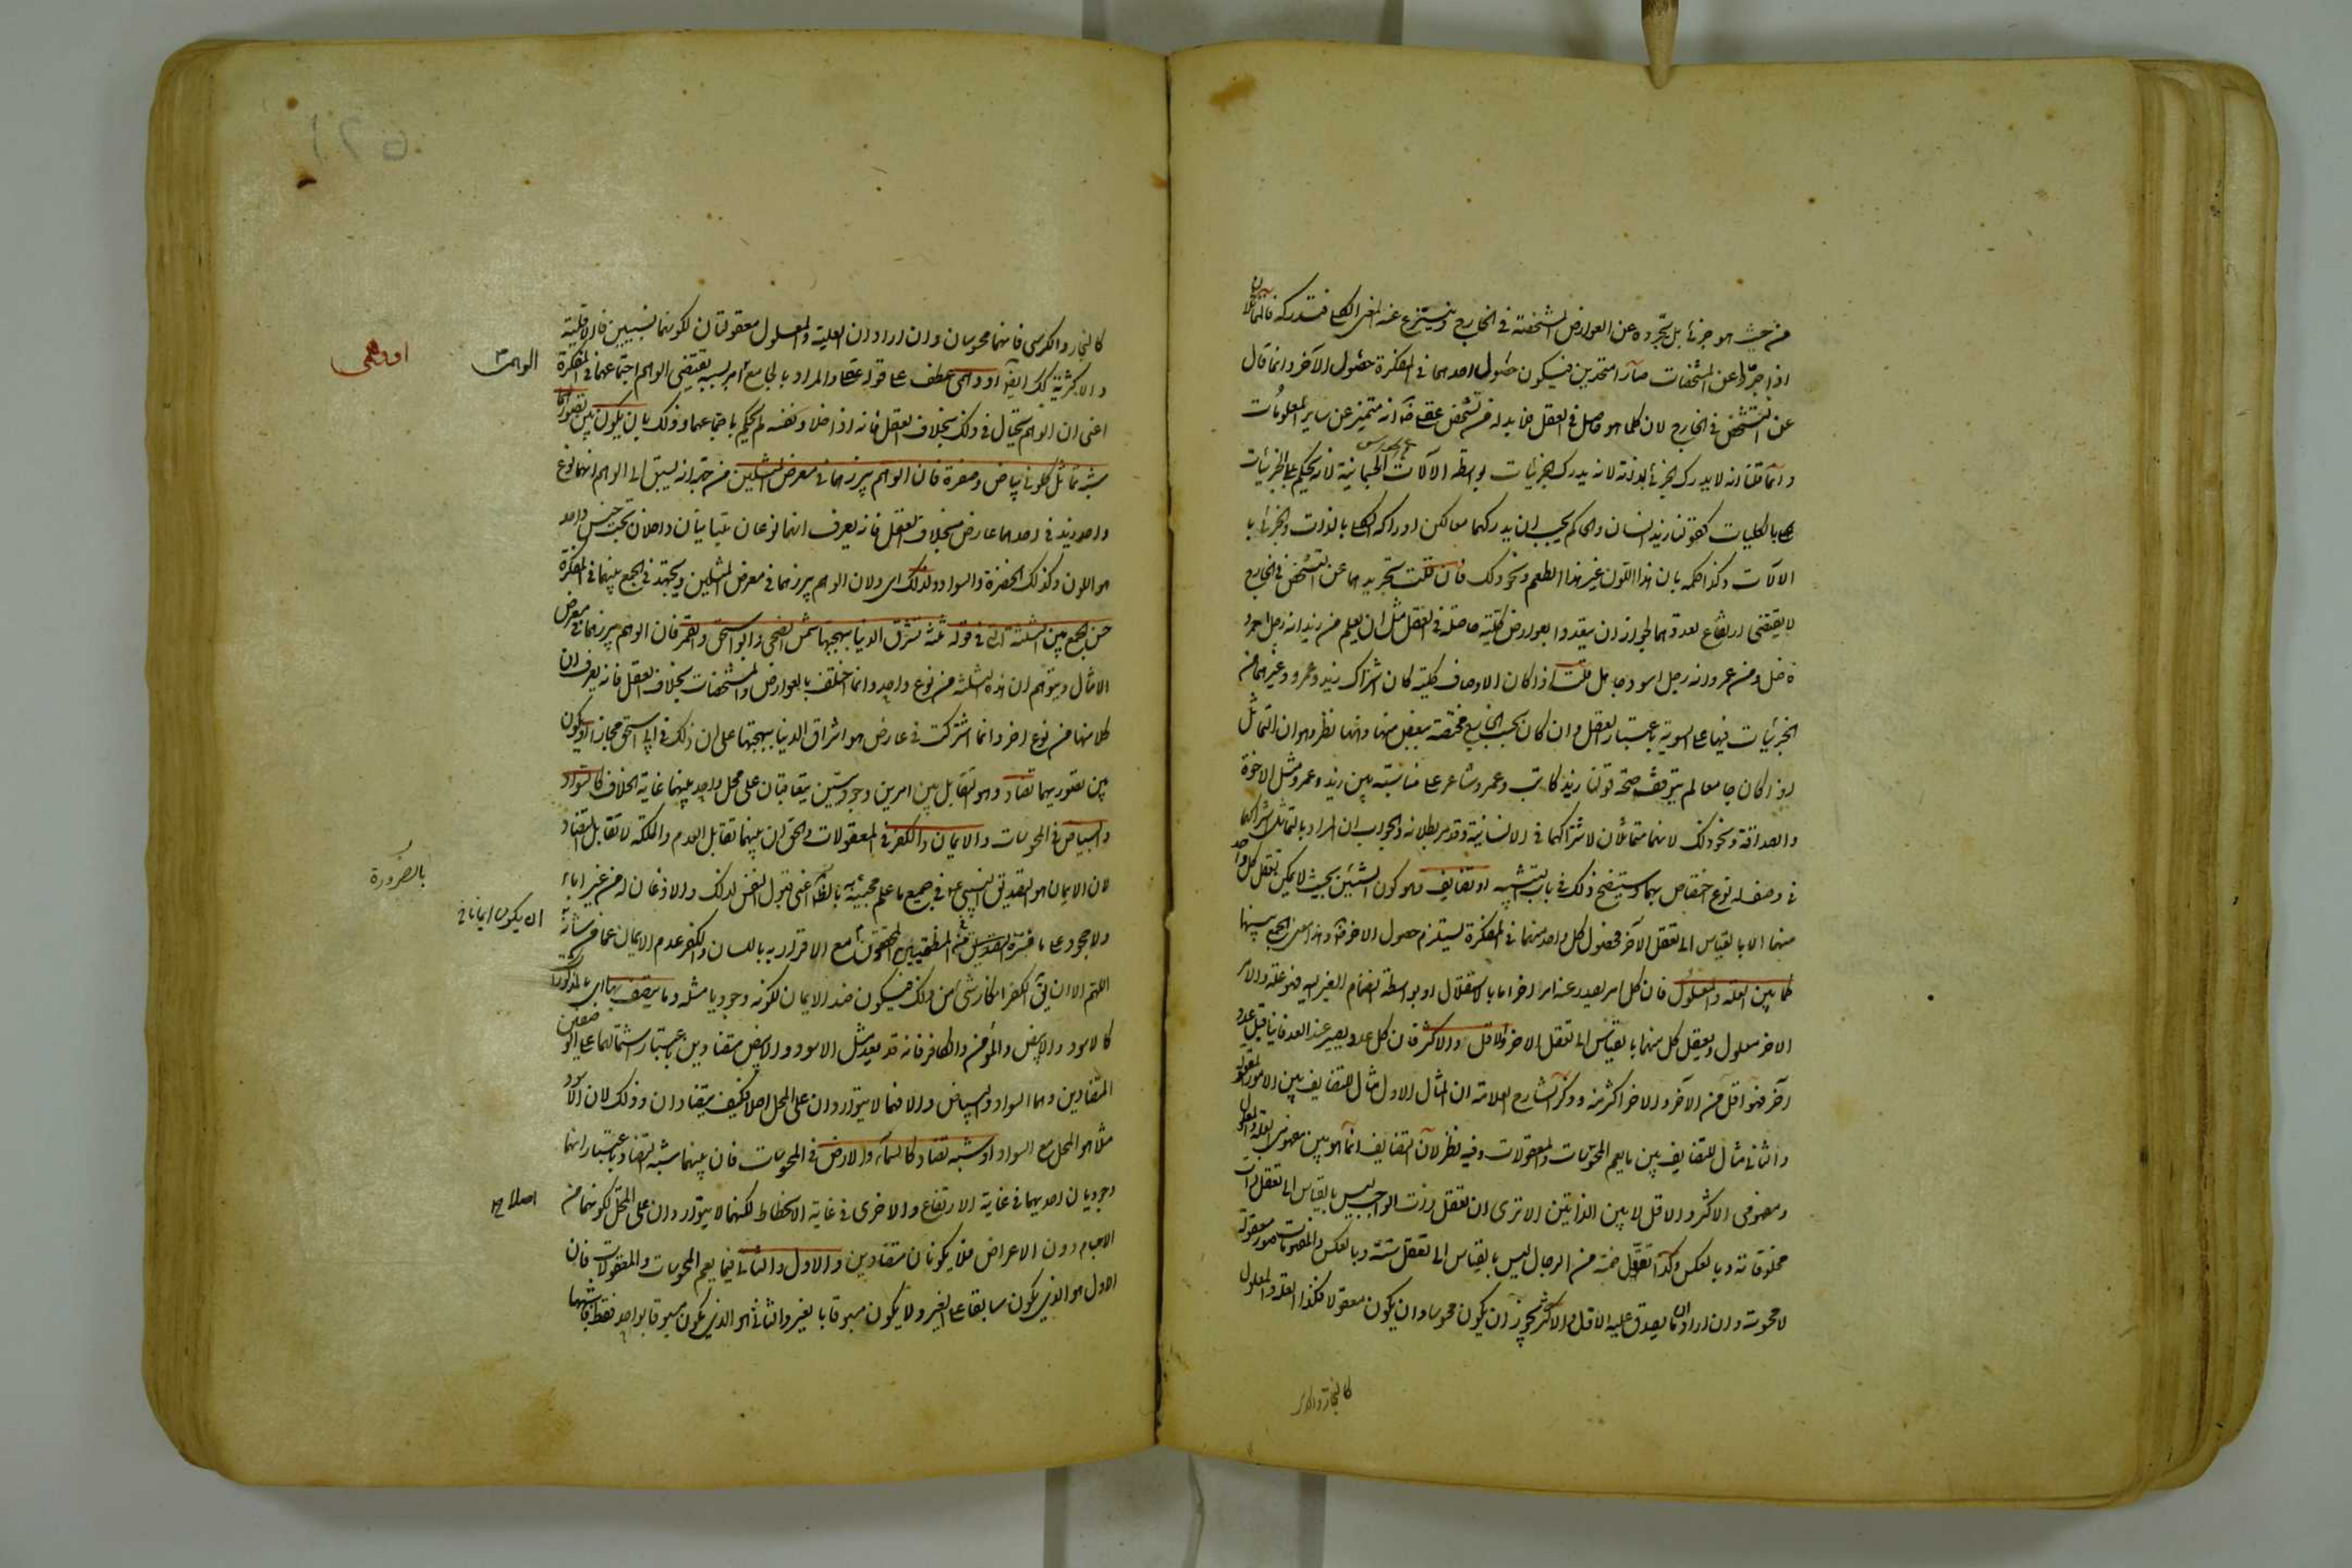 من حيث هو جزئى بل بتجرده عن العوارض المشخصة فى الخارج وينتزع عنه المعنى الكلى فتدركه فالمتماثلان
اذا جردا عن المشخصات صارا متحدين فيكون حضول احدهما فى المفكرة حضول الاخر وانما قال
عن التشخص فى الخارج لان كلما هو حاصل فى العقل فلا بد له من تشخص عقلى ضرورة انه متميز عن ساير المعلومات
وانما قلنا انه لا يدرك الجزئى بالذات لانه يدرك الجزئيات بواسطة الآلات الجسمانية لانه يحكم على الجزئيات
بالكليات كقولنا زيد انسان والحاكم يجب ان يدركهما معا لكن ادراكه الكلى بالذات والجزئى با
الالات وكذا حكمه بان هذا اللون غير هذا الطعم ونحو ذلك فان قلت تجريدهما عن التشخص فى الخارج
لا يقتضى ارتفاع تعددهما لجواز ان يتعددا بعوارض كلية حاصلة فى العقل مثل ان يعلم من زيد انه رجل احمر و
فاضل ومن عمرو انه رجل اسود جاهل قلت اذا كان الاوصاف كلية كان اشتراك زيد وعمرو وغيرهما من
الجزئيات فيها على السوية باعتبار العقل وان كان بحسب الخارج مختصة ببعض منها وههنا نظر وهو ان التماثل
اذا كان جامعا لم يتوقف صحة قولنا زيد كاتب وعمرو شاعر على مناسبة بين زيد وعمرو مثل الاخوة
والصداقة ونحو ذلك لانهما متماثلان لاشتراكهما فى الانسانية وقد مر بطلانه والجواب ان المراد بالتماثل اشتراكهما
فى وصف له نوع اختصاص بهما وسيتضح ذلك فى باب التشبيه او تضايف وهو كون الشيئين بحيث لا يمكن تعقل كل واحد
منهما الا بالقياس الى تعقل الآخر فحضول كل واحد منهما فى المفكرة يستلزم حصول الاخر ضرورة وهذا معنى الجمع بينهما
كما بين العلة والمعلول فان كل امر يصدر عنه امر اخر اما بالاستقلال او بواسطة انضمام الغير اليه فهو علة والامر
الاخر معلول ويعقل كل منهما بالقياس الى تعقل الاخر والاقل والاكثر فان كل عدد يصير عند العد فانيا قبل عدد
آخر فهو اقل من الآخر والاخر اكثر منه وذكر الشارح العلامة ان المثال الاول مثال للتضايف بين الامور المعقولة
والثانى مثال للتضايف بين ما يعم المحسوسات والمعقولات وفيه نظر لان التضايف انما هو بين مفهومى العلة والمعلول
ومفهومى الاكثر والاقل لا بين الذاتين الا ترى ان تعقل ذات الواجب ليس بالقياس الى تعقل ذات
مخلوقاته وبالعكس وكذا تعقل خمسة من الرجال ليس بالقياس الى تعقل ستة وبالعكس والمفهومات صور معقولة
لا محسوسة وان اراد ان ما يصدق عليه الاقل والاكثر يجوز ان يكون محسوسا وان يكون معقولا فكذا العلة والمعلول
كالنجار والكر
كالنجار والكرسى فانهما محسوسان وان اراد ان العلية والمعلول معقولتان لكونهما نسبيين فالاقلية
والاكثرية كذلك ايضا او وهمى عطف على قوله عقلى والمراد بالجامع الوهمى امر بسببه يقتضى الوهم اجتماعهما فى المفكرة
اعنى ان الوهم يحتال فى ذلك بخلاف العقل فانه اذا خلا ونفسه لم يحكم باجتماعهما وذلك بان يكون بين تصوراتهما
شبه تماثل كلونى بياض وصفرة فان الوهم يبرزهما فى معرض المثلين من جهة انه يسبق الى الوهم انهما نوع
واحد زيد فى احدهما عارض بخلاف العقل فانه يعرف انهما نوعان متباينان داخلان تحت جنس واحد
هو اللون وكذلك الخضرة والسواد ولذلك اى ولان الوهم يبرزهما فى معرض المثلين ويجتهد فى الجمع بينهما فى المفكرة
حسن الجمع بين الثلثة التى فى قوله ثلثة تشرق الدنيا ببهجتها شمس الضحى وابو اسحق والقمر فان الوهم يبرزهما فى معرض
الامثال ويتوهم ان هذه الثلثة من نوع واحد وانما اختلف بالعوارض والمشخصات بخلاف العقل فانه يعرف ان
كلا منها من نوع اخر وانما اشتركت فى عارض هو اشراق الدنيا ببهجتها على ان ذلك فى ابى اسحق مجاز او يكون
بين تصوريهما تضاد وهو التقابل بين امرين وجوديين يتعاقبان على محل واحد بينهما غاية الخلاف كالسواد
والبياض فى المحسوسات والايمان والكفر فى المعقولات والحق ان بينهما تقابل العدم والملكة لا تقابل التضاد
لان الايمان هو التصديق للنبى عم فى جميع ما علم مجيئه به بالضرورة اعنى قبول النفس لذلك والاذعان له من غير اباء
ولا جحود على ما فسره المحققون من المنطقيين مع الاقرار به باللسان والكفر عدم الايمان عما من شانه
اللهم الا ان يق الكفر انكار شئ من ذلك فيكون ضد الايمان لكونه وجوديا مثله وما يتصف بها اى بالمذكورات
كالاسود والابيض والمؤمن والكافر فانه قد يعد مثل الاسود والابيض متضادين باعتبار اشتمالهما على الوصفين
المتضادين وهما السواد والبياض والا فهما لا يتواردان على المحل اصلا فكيف يتضادان وذلك لان الاسود
مثلا هو المحل مع السواد او شبه تضاد كالسماء والارض فى المحسوسات فان بينهما شبه التضاد باعتبار انهما
وجوديان احديهما فى غاية الارتفاع والاخرى فى غاية الانحطاط لكنهما لا يتواردان على المحل لكونهما من
الاجسام دون الاعراض فلا يكونان متضادين والاول والثانى فيما يعم المحسوسات والمعقولات فان
الاول هو الذى يكون سابقا على الغير ولا يكون مسبوقا بالغير والثانى هو الذى يكون مسبوقا بواحد فقط فاشبها
او وهمى
الوهمى
بالضرورة
ان يكون ايمانا
اصلا